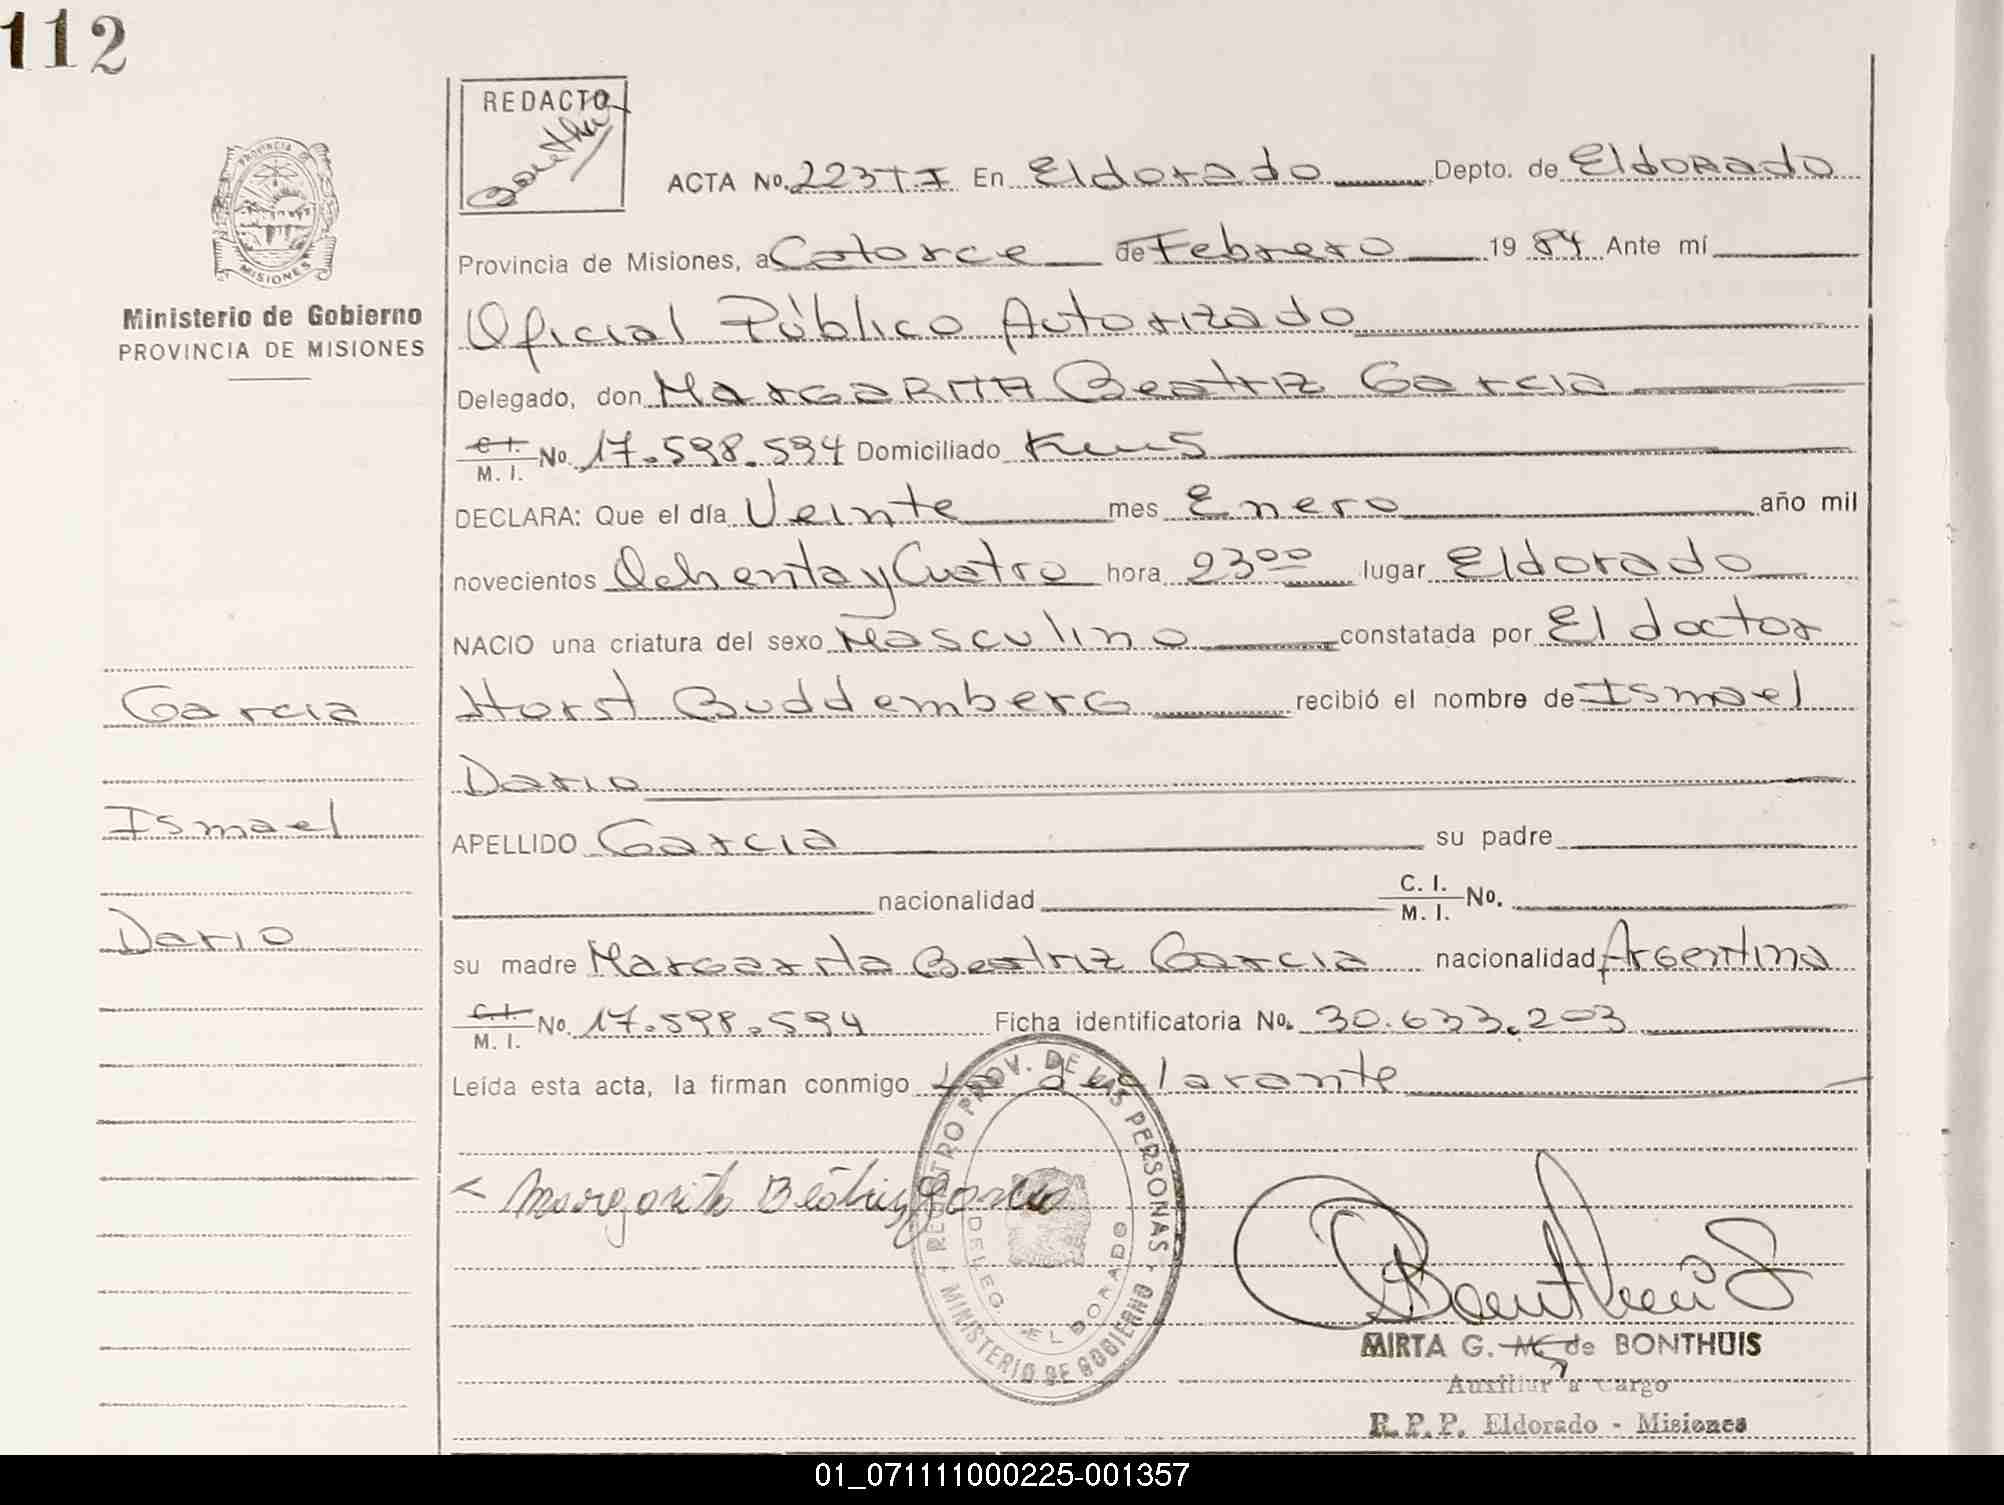 112
REDACTO
Bonthuis
PROVINCIA D
MISIONES
Ministerio de Gobierno
PROVINCIA DE MISIONES
ACTA No. 223TI En Eldorado Depto. de Eldorado
Provincia de Misiones, a Catorce de Febrero 1984 Ante mí
Oficial Público Autorizado
Delegado, don Margarita Beatriz Garcia
C. I. / M. I. No. 17.598.594 Domiciliado
DECLARA: Que el día Veinte mes Enero año mil
novecientos Ochenta y Cuatro hora 23ºº lugar Eldorado
NACIO una criatura del sexo Masculino constatada por El doctor
Horst Buddemberg recibió el nombre de Ismael
Dario
APELLIDO Garcia su padre
nacionalidad C. I. / M. I. No.
su madre Margarita Beatriz Garcia nacionalidad Argentina
C. I. / M. I. No. 17.598.594 Ficha identificatoria No. 30.633.203
Leída esta acta, la firman conmigo La declarante
Garcia
Ismael
Dario
Margarita Beatriz Garcia
REGISTRO PROV. DE LAS PERSONAS
MINISTERIO DE GOBIERNO
DELEG. ELDORADO
Bonthuis
MIRTA G. de BONTHUIS
Auxiliar a Cargo
R. P. P. Eldorado - Misiones
01_071111000225-001357